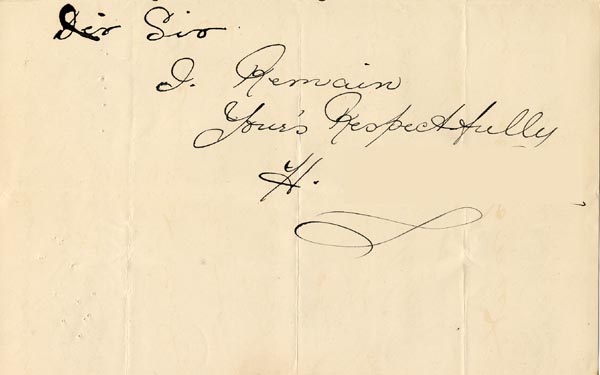 Dir Sir
I. Remain
Your's Respectfully
H.